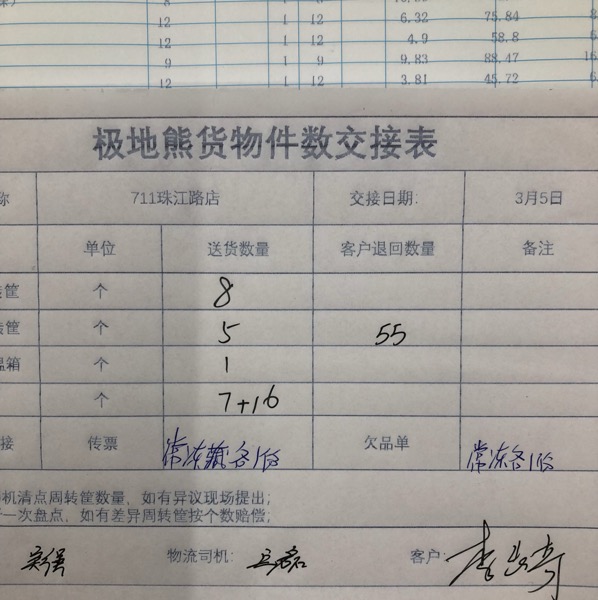 8 1 8
12 1 12 6.32 75.84 8
12 1 12 4.9 58.8 6
9 1 9 9.83 88.47 16
12 1 12 3.81 45.72 6
极地熊货物件数交接表
称 711珠江路店 交接日期: 3月5日
单位 送货数量 客户退回数量 备注
筐 个 8
筐 个 5 55
温箱 个 1
个 7+16
接 传票 常冻藏各1份 欠品单 常冻各1份
机清点周转筐数量, 如有异议现场提出;
一次盘点, 如有差异周转筐按个数赔偿;
物流司机: 客户: